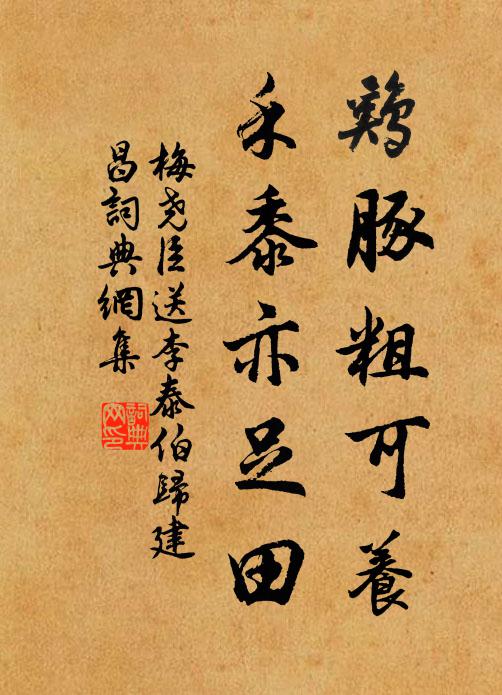 鷄豚粗可養
禾黍亦足田
梅堯臣送李泰伯歸建
昌詞典網集
詞典
网印